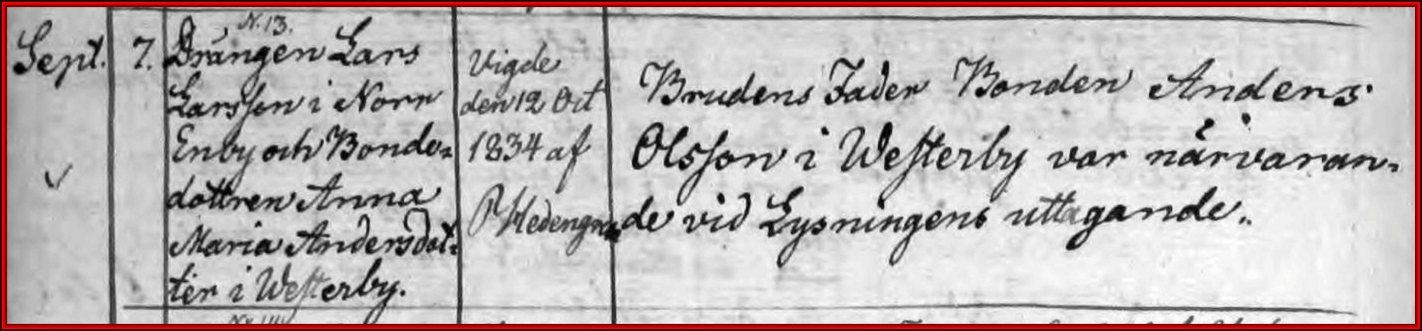 N. 13.
Sept. 7. Drängen Lars
Larsson i Norr
Enby och Bonde=
dottren Anna
Maria Andersdot=
ter i Westerby.
Vigde
den 12 Oct
1834 af
P Hedengren
Brudens Fader Bonden Anders
Olsson i Westerby var närvaran=
de vid Lysningens uttagande.